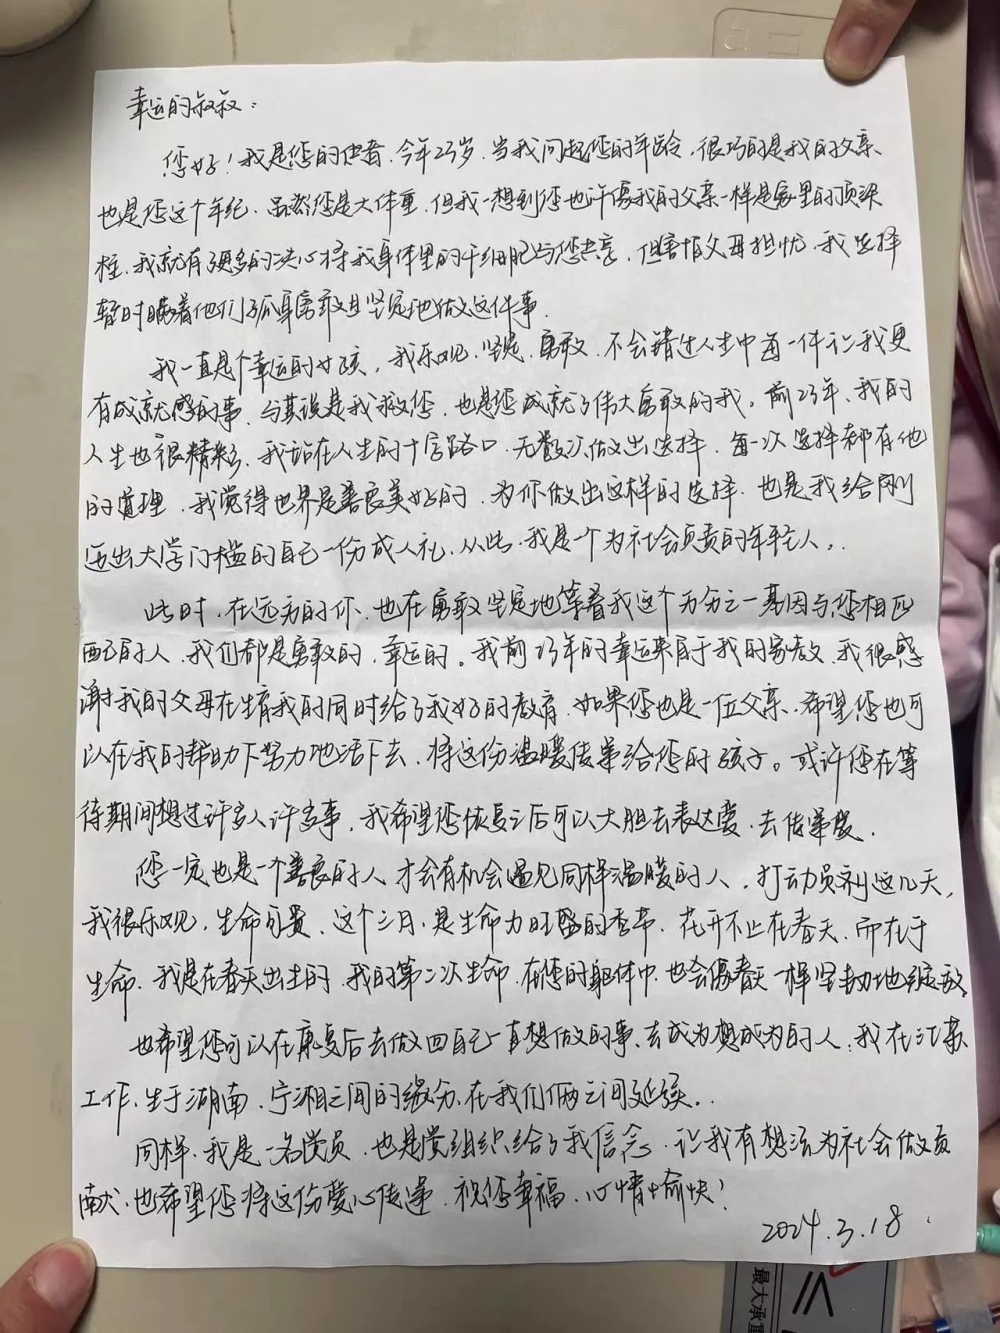 幸运的叔叔：
您好！我是您的供者，今年23岁，当我问起您的年龄，很巧的是我的父亲
也是您这个年纪，虽然您是大体重，但我一想到您也许像我的父亲一样是家里的顶梁
柱，我就有更多的决心将我身体里的干细胞与您共享，但害怕父母担忧，我选择
暂时瞒着他们孤身勇敢且坚定地做这件事.
我一直是个幸运的女孩，我乐观、坚定、勇敢，不会错过人生中每一件让我更
有成就感的事，与其说是我救您，也是您成就了伟大勇敢的我，前23年，我的
人生也很精彩，我站在人生的十字路口，无数次做出选择，每一次选择都有他
的道理，我觉得世界是善良美好的，为你做出这样的选择，也是我给刚
迈出大学门槛的自己一份成人礼，从此，我是个为社会负责的年轻人..
此时，在远方的你，也在勇敢坚定地等着我这个万分之一基因与您相匹
配的人，我们都是勇敢的，幸运的。我前23年的幸运来自于我的家教，我很感
谢我的父母在生育我的同时给了我好的教育，如果您也是一位父亲，希望您也可
以在我的帮助下努力地活下去，将这份温暖传递给您的孩子。或许您在等
待期间想过许多人许多事，我希望您恢复之后可以大胆去表达爱，去传递爱.
您一定也是一个善良的人，才会有机会遇见同样温暖的人，打动员剂这几天，
我很乐观，生命可贵，这个三月，是生命力旺盛的季节，花开不止在春天，而在于
生命，我是在春天出生的，我的第二次生命，在您的躯体中，也会像春天一样坚韧地绽放.
也希望您可以在康复后去做回自己一直想做的事，去成为想成为的人，我在江苏
工作，生于湖南，宁湘之间的缘分，在我们俩之间延续..
同样，我是一名党员，也是党组织给了我信念，让我有想法为社会做贡
献，也希望您将这份爱心传递，祝您幸福，心情愉快！
2024.3.18
最大承重